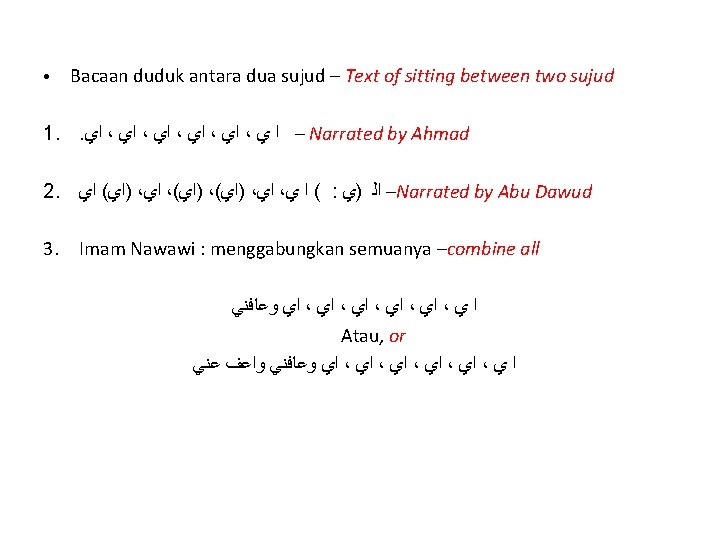 • Bacaan duduk antara dua sujud – Text of sitting between two sujud
1. ﺍ ﻱ ، ﺍﻱ ، ﺍﻱ ، ﺍﻱ ، ﺍﻱ ، ﺍﻱ. – Narrated by Ahmad
2. ﺍﻟ (ﻱ : ( ﺍ ﻱ، ﺍﻱ، (ﺍﻱ)، (ﺍﻱ)، ﺍﻱ، (ﺍﻱ) ﺍﻱ –Narrated by Abu Dawud
3. Imam Nawawi : menggabungkan semuanya –combine all
ﺍ ﻱ ، ﺍﻱ ، ﺍﻱ ، ﺍﻱ ، ﺍﻱ ، ﺍﻱ ﻭﻋﺎﻓﻨﻲ
Atau, or
ﺍ ﻱ ، ﺍﻱ ، ﺍﻱ ، ﺍﻱ ، ﺍﻱ ، ﺍﻱ ﻭﻋﺎﻓﻨﻲ ﻭﺍﻋﻒ ﻋﻨﻲ